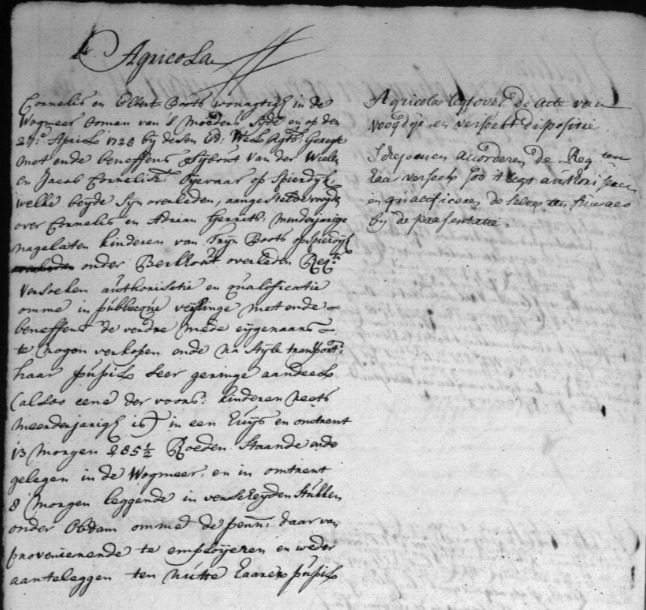 Agricola
Cornelis en Elbert Borts woonagtigh in de
Wogmeer Ooman van 's Moeders syde en op den
29:e April 1728 by desen Ed: Wels Agtb: Geregte
met ende beneffens Sijbout Van der Wielen
en Jacob Cornelisz: op Spierdyk
welke beyde syn overleden, aangestelde voogden
over Cornelis en Adrian Gerritsz. minderjarige
nagelaten kinderen van Trijn Borts op Spierdijk
onder Berkhout overleden Req:ten
Versoeken authorisatie en qualificatie
omme in publicque veylinge met ende
beneffens de verdre mede eygenaars
te mogen verkopen ende na style transport:
haar pupils seer geringe aandeel
(alsoo eene der voors: kinderen reets
meerderjarigh is) in een huys en omtrent
13 Morgen 285½ Roeden staande ende
gelegen in de Wogmeer, en in omtrent
8 Morgen leggende in verscheyden stukken
onder Obdam omme de penn: daar van
provenierende te employeren en weder
aanteleggen ten nutte haarer pupils
Agricola de acte van
voogdije en versoekt dispositie
Schepenen accorderen de Req:ten
haar versoek authoriseeren
en qualificeeren de selve ten
by de presentatie.